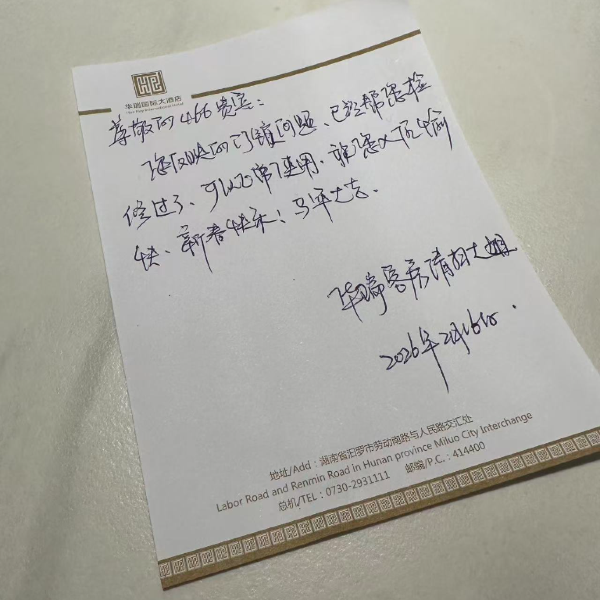 华瑞国际大酒店
尊敬的466贵宾：
您反映的门锁问题、已经帮您检
修过了、可以正常使用、祝您入住愉
快、新春快乐！马年大吉.
华瑞客房清扫大姐
2026年2月16日.
地址/Add：湖南省汨罗市劳动南路与人民路交汇处
Labor Road and Renmin Road in Hunan province Miluo City Interchange
总机/TEL：0730-2931111 邮编/P.C.：414400